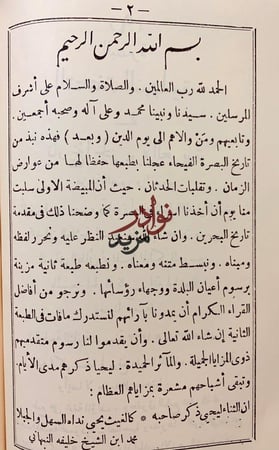 — ٢ —
بسم الله الرحمن الرحيم
الحمد لله رب العالمين . والصلاة والسلام على أشرف
المرسلين . سيدنا ونبينا محمد وعلى آله وصحبه أجمعين .
وتابعيهم ومن والاهم الى يوم الدين ( وبعد ) فهذه نبذ من
تاريخ البصرة الفيحاء عجلنا بطبعها حفظا لها من عوارض
الزمان . وتقلبات الحدثان . حيث أن المبيضة الاولى سلبت
منا يوم أن أخذنا البصرة كما وضحنا ذلك في مقدمة
تاريخ البحرين . وان شاء النظر عليه ونحرر لفظه
ومبناه . ونبسط متنه ومعناه . ونطبعه طبعة ثانية مزينة
برسوم أعيان البلدة ووجهاء رؤسائها . ونرجو من أفاضل
القراء الكرام أن يمدونا بآرائهم لنستدرك مافات في الطبعة
الثانية إن شاء الله تعالى . وأن يقدموا لنا رسوم متقدميهم
ذوي المزايا الجميلة . والمآثر الحميدة . ليحيا ذكرهم مدى الأيام .
وتبقى أشباحهم مشعرة بمزاياهم العظام :
ان الثناء ليحيي ذكر صاحبه * كالغيث يحيي نداه السهل والجبلا
محمد ابن الشيخ خليفه النبهاني
نوادر
مزيد